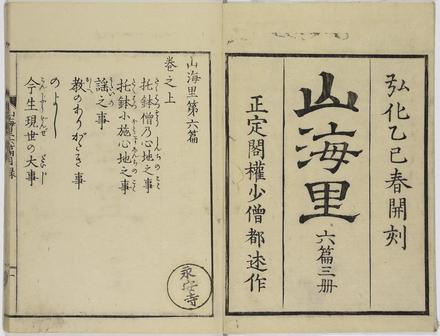 弘化乙巳春開刻
山海里
六篇三册
正定閣權少僧都述作
山海里第六篇
巻之上
托鉢僧乃心地之事
托鉢小施心地之事
謡之事
教のありがたき事
のよし
今生現世の大事
永安寺